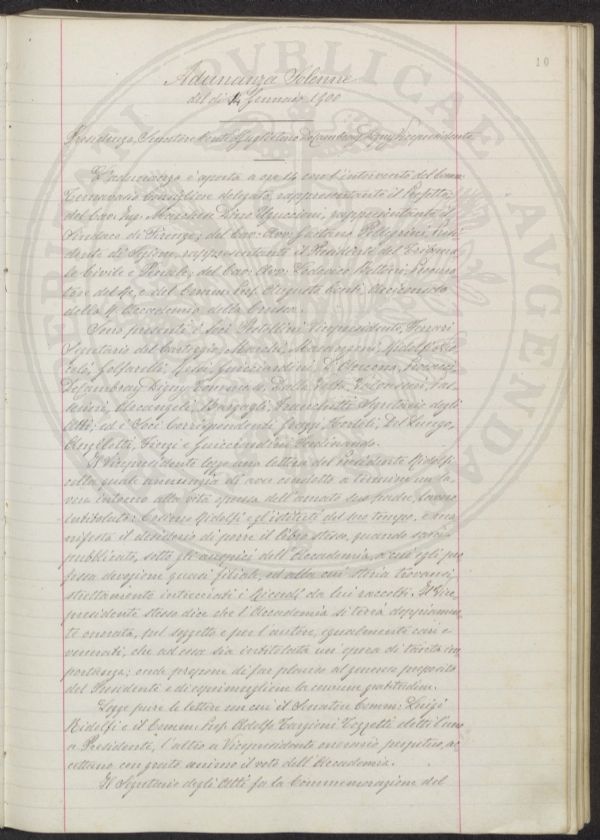 10
Adunanza Solenne
del dì 14 Gennaio 1900
Presidenza, Senatore Conte Guglielmo De Cambray Digny Vicepresidente
L'adunanza è aperta a ore 14 con l'intervento del Comm.
consigliere delegato, rappresentante il Prefetto;
del Cav. Mar. Marchese Dino Uguccioni, rappresentante il
Sindaco di Firenze; del Cav. Avv. Gaetano Pellegrini, Presi-
dente di Sezione, rappresentante il Presidente del Tribuna-
le Civile e Penale; del Cav. Avv. Federico Bettini, Procura-
tore del Re, e del Comm. Prof. Augusto Conti, Arciconsolo
della R. Accademia della Crusca.
Sono presenti i Soci Vicepresidente, Ferrari
Segretario del Carteggio, Marchi, Ridolfi
Golfarelli, Guicciardini, D'Ancona,
De Cambray Digny Tommaso, Dalla Volta,
Arcangeli, Bargagli, Franchetti Segretario degli
Atti; ed i Soci Corrispondenti Grazzi, Bertoli, Del Lungo,
Angelotti, e Guicciardini Ferdinando.
Il Vicepresidente legge una lettera del Presidente Ridolfi
colla quale annunzia di aver condotto a termine un la-
voro intorno alla vita operosa dell'amato suo padre, lavoro
intitolato: Cosimo Ridolfi e gl'istituti del suo tempo, e ma-
nifesta il desiderio di porre il libro stesso, quando sarà
pubblicato, sotto gli auspici dell'Accademia, a cui egli pro-
fessa devozione quasi filiale, ed alla cui storia trovansi
strettamente intrecciati i Ricordi da lui raccolti. Il Vice-
presidente stesso dice che l'Accademia si terrà doppiamen-
te onorata, pel soggetto e per l'autore, egualmente cari e
venerati, che ad essa sia intitolata un'opera di tanta im-
portanza; onde propone di far plauso al generoso proposito
del Presidente e di esprimergliene la comune gratitudine.
Legge pure le lettere con cui il Senatore Comm. Luigi
Ridolfi e il Comm. Prof. Adolfo Targioni Tozzetti eletti l'uno
a Presidente, l'altro a Vicepresidente onorario perpetuo, ac-
cettano con grato animo il voto dell'Accademia.
Il Segretario degli Atti fa la Commemorazione del